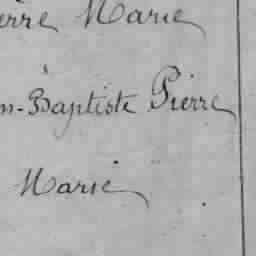 erre Marie
n-Baptiste Pierre
Marie